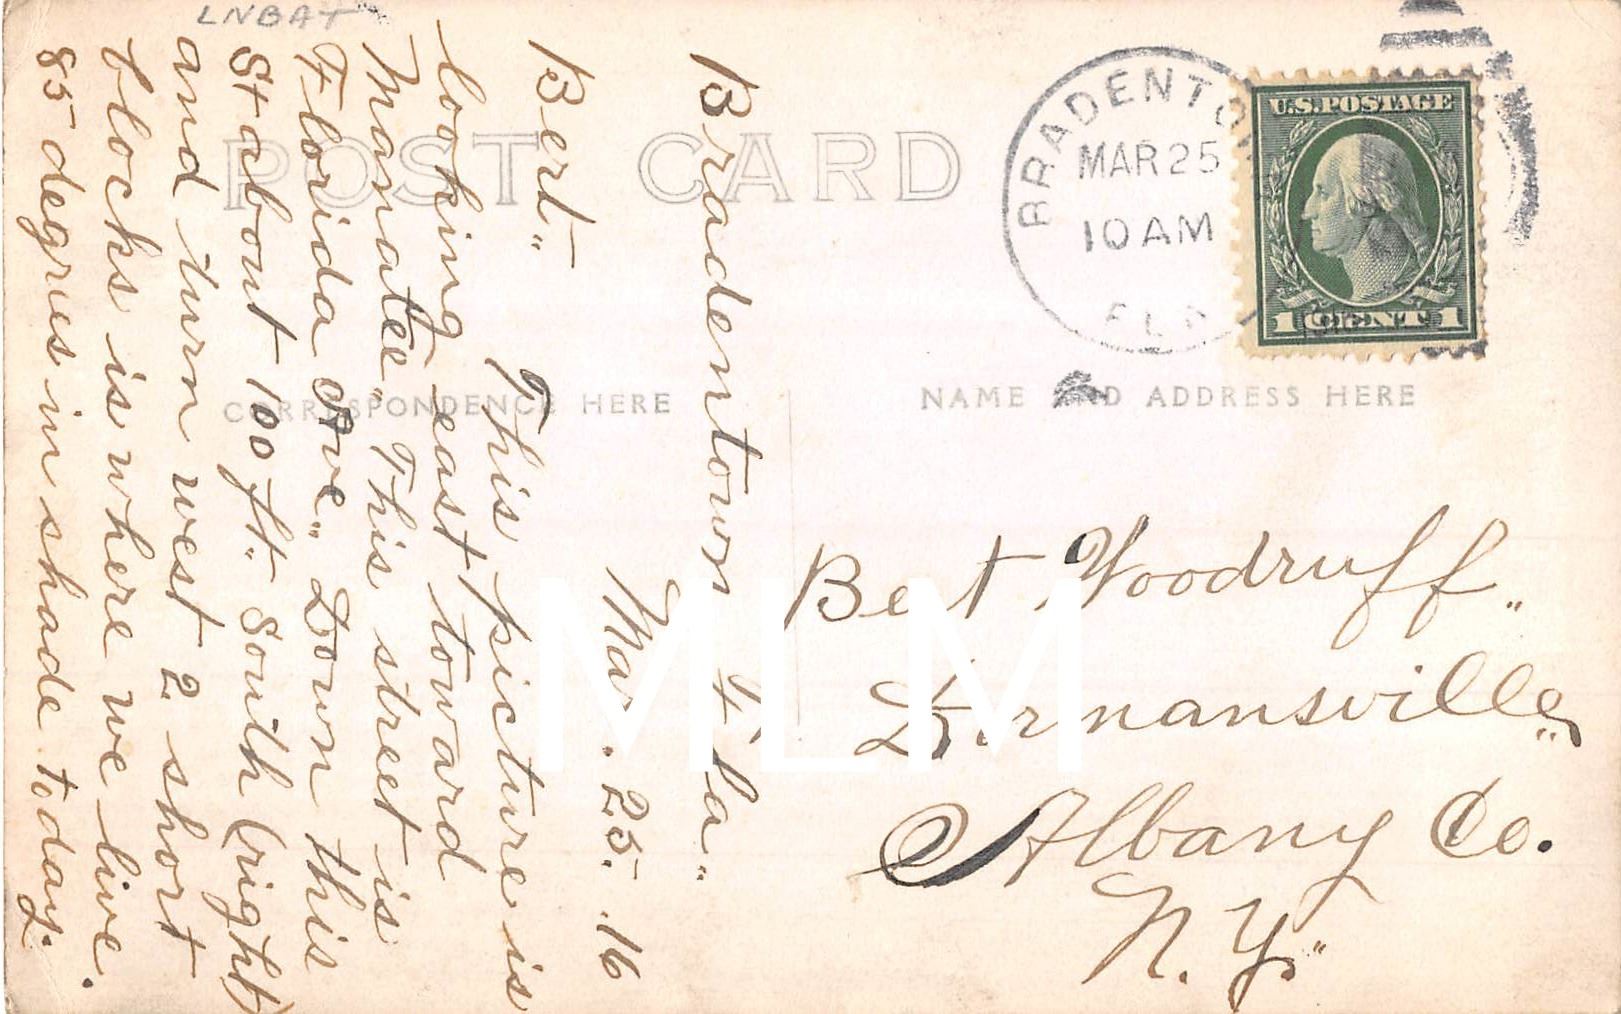 LNBAT
POST CARD
CORRESPONDENCE HERE
NAME AND ADDRESS HERE
BRADENTOWN
MAR 25
10 AM
FLA
U.S. POSTAGE
1 CENT 1
Bradentown Fla.
Mar. 25. 16
Bert.
This picture is
looking east toward
Manatee. This street is
Florida Ave. Down this
St about 100 ft. South (right)
and turn west 2 short
blocks is where we live.
85 degrees in shade today.
Bert Woodruff
Dormansville
Albany Co.
N. Y.
MLM